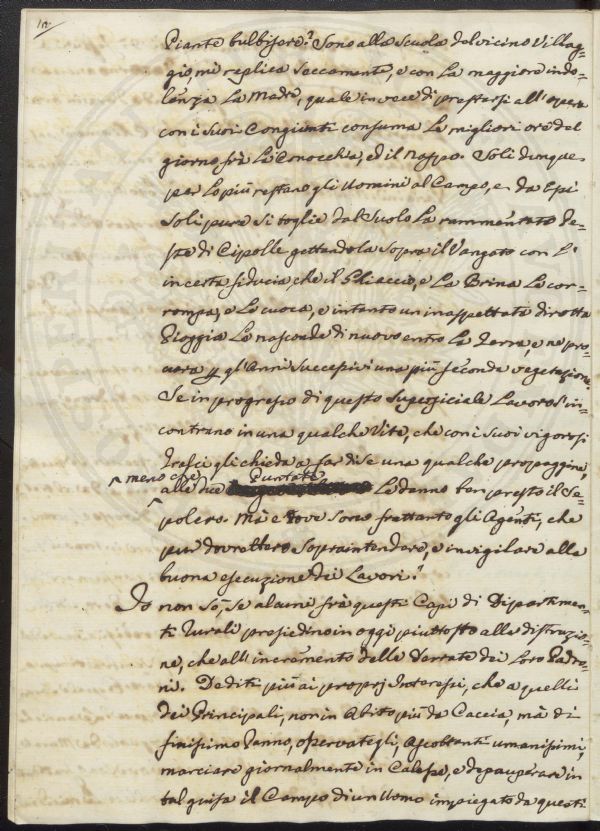 10.
Piante bulbifere? Sono alla Scuola del vicino Villag-
gio, mi replica Seccamente, e con La maggiore indo-
lenza La Madre, quale in vece di prestarsi all'opera
con i Suoi Congiunti consuma Le migliori ore del
giorno frà La Conocchia, ed il Naspo. Soli dunque
per Lo più restano gli Uomini al Campo, e da Essi
Soli pure Si toglie dal Suolo La rammentata Pe-
ste di Cipolle gettandola Sopra il Vangato con L'
incerta fiducia, che il Ghiaccio, e La Brina La cor-
rompa, e La cuoca, e intanto un inaspettata dirotta
Pioggia La nasconde di nuovo entro La Terra, e ne pro-
cura p gl'Anni Successivi una più feconda vegetazione.
Se in progresso di questo Superficiale Lavoro S'in-
contrano in una qualche Vite, che con i Suoi vigorosi
Tralci gli chieda a far di se una qualche propaggine,
meno che Puntate
alle due Le danno ben presto il Se-
polcro. Mà e dove Sono frattanto gli Agenti, che
pur dovrebbero Sopraintendere, e invigilare alla
buona esecuzione dei Lavori?
Io non Sò, Se alcuni frà questi Capi di Dipartimen-
ti Rurali presiedino in oggi piuttosto alla distruzio-
ne, che all'incremento delle derrate dei Loro Padro-
ni. Dediti più ai proprj Interessi, che a quelli
dei Principali, non in Abito più da Caccia, mà di
finissimo Panno, osservategli, Ascoltanti umanissimi,
marciare giornalmente in Calesse, e depauperare in
tal guisa il Campo di un Uomo impiegato da questi